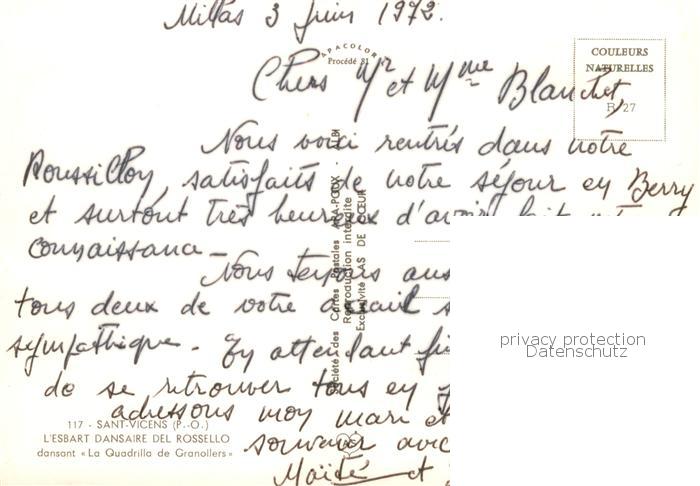 Millas 3 Juin 1972.
APACOLOR
Procédé 81
COULEURS
NATURELLES
R 27
Chers Mr et Mme Blanchet,
Nous voici rentrés dans notre
Roussillon, satisfaits de notre séjour en Berry
et surtout très heureux d'avoir fait
connaissance -
Nous tenions
tous deux de votre accueil
sympathique - En attendant
de se retrouver tous en
adressons mon mari et
souvenir avec
Maïté et
Société des Cartes Postales APA-POUX - ALBI
Reproduction interdite
Exclusivité AS DE CŒUR
117 - SANT-VICENS (P.-O.)
L'ESBART DANSAIRE DEL ROSSELLO
dansant «La Quadrilla de Granollers»
privacy protection
Datenschutz